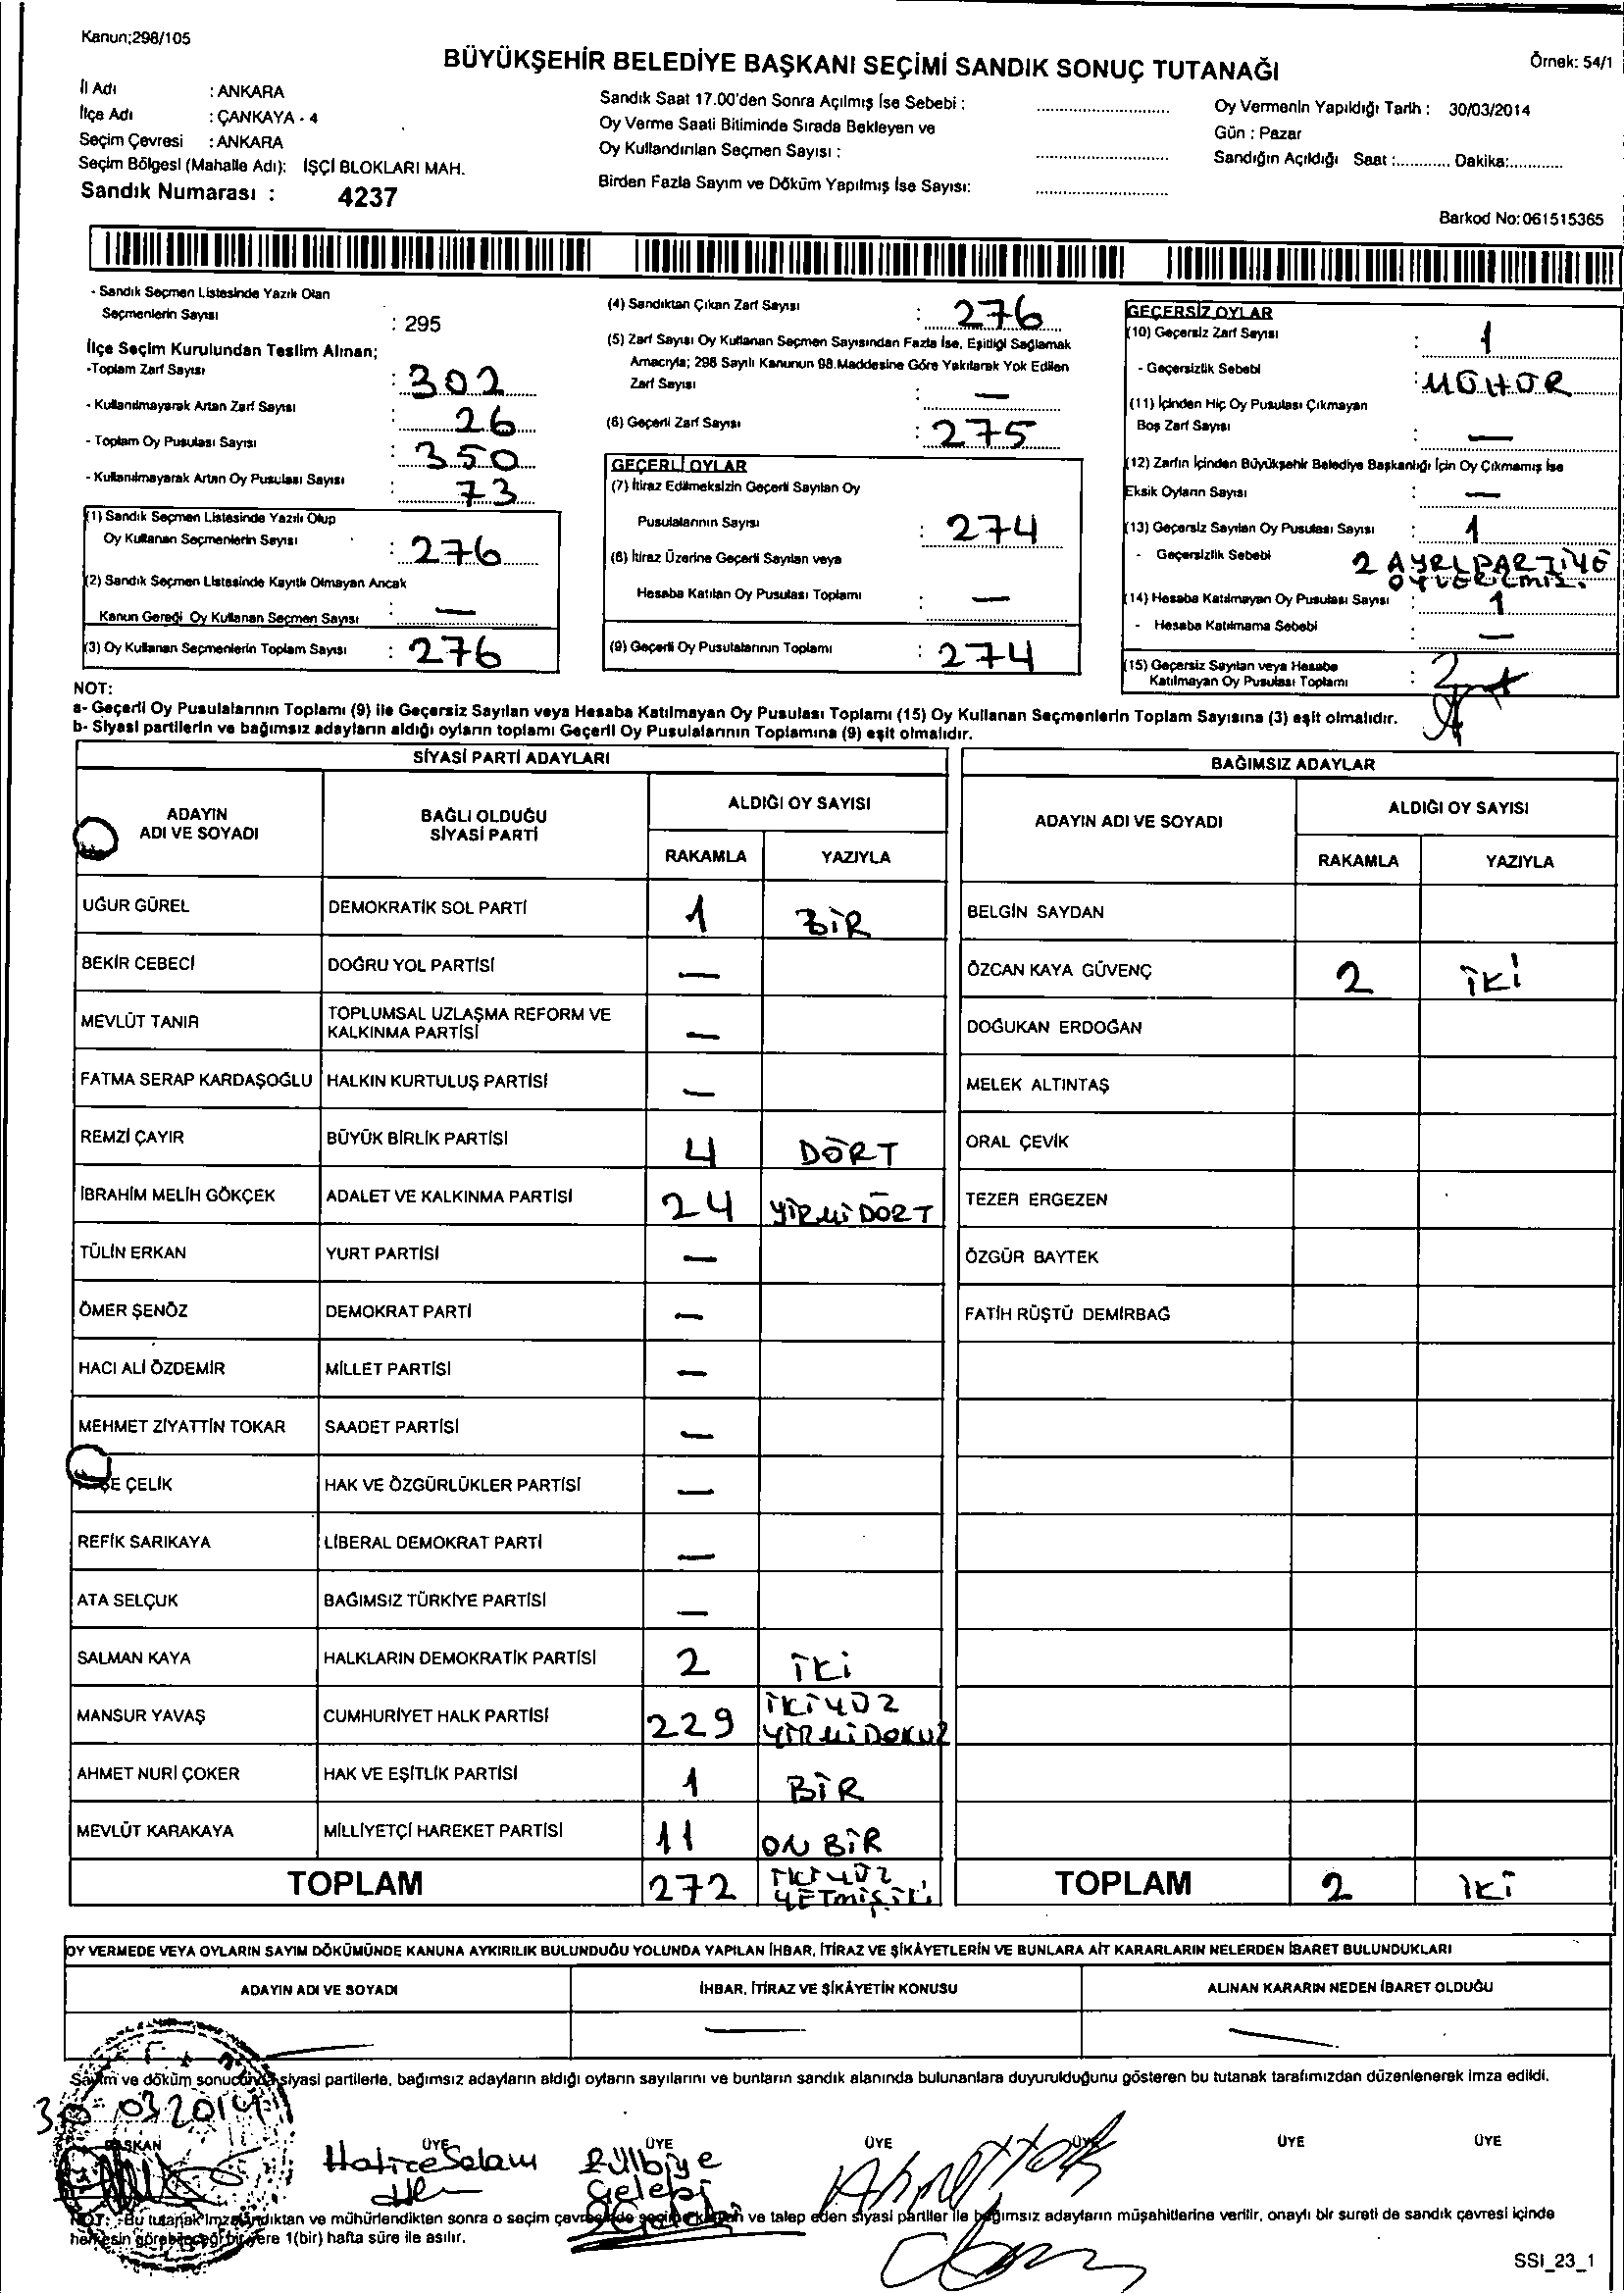 Kanun;298/105
BÜYÜKŞEHİR BELEDİYE BAŞKANI SEÇİMİ SANDIK SONUÇ TUTANAĞI
Örnek: 54/1
İl Adı : ANKARA
İlçe Adı : ÇANKAYA - 4
Seçim Çevresi : ANKARA
Seçim Bölgesi (Mahalle Adı): İŞÇİ BLOKLARI MAH.
Sandık Numarası : 4237
Sandık Saat 17.00'den Sonra Açılmış İse Sebebi :
Oy Verme Saati Bitiminde Sırada Bekleyen ve
Oy Kullandırılan Seçmen Sayısı :
Birden Fazla Sayım ve Döküm Yapılmış İse Sayısı:
Oy Vermenin Yapıldığı Tarih : 30/03/2014
Gün : Pazar
Sandığın Açıldığı Saat :........... Dakika:...........
Barkod No:061515365
- Sandık Seçmen Listesinde Yazılı Olan
Seçmenlerin Sayısı : 295
İlçe Seçim Kurulundan Teslim Alınan;
-Toplam Zarf Sayısı : 302
- Kullanılmayarak Artan Zarf Sayısı : 26
- Toplam Oy Pusulası Sayısı : 350
- Kullanılmayarak Artan Oy Pusulası Sayısı : 73
(1) Sandık Seçmen Listesinde Yazılı Olup
Oy Kullanan Seçmenlerin Sayısı : 276
(2) Sandık Seçmen Listesinde Kayıtlı Olmayan Ancak
Kanun Gereği Oy Kullanan Seçmen Sayısı : —
(3) Oy Kullanan Seçmenlerin Toplam Sayısı : 276
(4) Sandıktan Çıkan Zarf Sayısı : 276
(5) Zarf Sayısı Oy Kullanan Seçmen Sayısından Fazla İse, Eşitliği Sağlamak
Amacıyla; 298 Sayılı Kanunun 98.Maddesine Göre Yakılarak Yok Edilen
Zarf Sayısı : —
(6) Geçerli Zarf Sayısı : 275
GEÇERLİ OYLAR
(7) İtiraz Edilmeksizin Geçerli Sayılan Oy
Pusulalarının Sayısı : 274
(8) İtiraz Üzerine Geçerli Sayılan veya
Hesaba Katılan Oy Pusulası Toplamı : —
(9) Geçerli Oy Pusulalarının Toplamı : 274
GEÇERSİZ OYLAR
(10) Geçersiz Zarf Sayısı : 1
- Geçersizlik Sebebi : MÜHÜR
(11) İçinden Hiç Oy Pusulası Çıkmayan
Boş Zarf Sayısı : —
(12) Zarfın İçinden Büyükşehir Belediye Başkanlığı İçin Oy Çıkmamış İse
Eksik Oyların Sayısı : —
(13) Geçersiz Sayılan Oy Pusulası Sayısı : 1
- Geçersizlik Sebebi 2 AYRI PARTİYE
OY VERİLMİŞ.
(14) Hesaba Katılmayan Oy Pusulası Sayısı : 1
- Hesaba Katılmama Sebebi : —
(15) Geçersiz Sayılan veya Hesaba
Katılmayan Oy Pusulası Toplamı : 2
NOT:
a- Geçerli Oy Pusulalarının Toplamı (9) ile Geçersiz Sayılan veya Hesaba Katılmayan Oy Pusulası Toplamı (15) Oy Kullanan Seçmenlerin Toplam Sayısına (3) eşit olmalıdır.
b- Siyasi partilerin ve bağımsız adayların aldığı oyların toplamı Geçerli Oy Pusulalarının Toplamına (9) eşit olmalıdır.
SİYASİ PARTİ ADAYLARI
ADAYIN
ADI VE SOYADI
BAĞLI OLDUĞU
SİYASİ PARTİ
ALDIĞI OY SAYISI
RAKAMLA YAZIYLA
UĞUR GÜREL DEMOKRATİK SOL PARTİ 1 BİR
BEKİR CEBECİ DOĞRU YOL PARTİSİ —
MEVLÜT TANIR TOPLUMSAL UZLAŞMA REFORM VE
KALKINMA PARTİSİ —
FATMA SERAP KARDAŞOĞLU HALKIN KURTULUŞ PARTİSİ —
REMZİ ÇAYIR BÜYÜK BİRLİK PARTİSİ 4 DÖRT
İBRAHİM MELİH GÖKÇEK ADALET VE KALKINMA PARTİSİ 24 YİRMİ DÖRT
TÜLİN ERKAN YURT PARTİSİ —
ÖMER ŞENÖZ DEMOKRAT PARTİ —
HACI ALİ ÖZDEMİR MİLLET PARTİSİ —
MEHMET ZİYATTİN TOKAR SAADET PARTİSİ —
ÇELİK HAK VE ÖZGÜRLÜKLER PARTİSİ —
REFİK SARIKAYA LİBERAL DEMOKRAT PARTİ —
ATA SELÇUK BAĞIMSIZ TÜRKİYE PARTİSİ —
SALMAN KAYA HALKLARIN DEMOKRATİK PARTİSİ 2 İKİ
MANSUR YAVAŞ CUMHURİYET HALK PARTİSİ 229 İKİYÜZ
YİRMİDOKUZ
AHMET NURİ ÇOKER HAK VE EŞİTLİK PARTİSİ 1 BİR
MEVLÜT KARAKAYA MİLLİYETÇİ HAREKET PARTİSİ 11 ON BİR
TOPLAM 272 İKİYÜZ
YETMİŞİKİ
BAĞIMSIZ ADAYLAR
ADAYIN ADI VE SOYADI
ALDIĞI OY SAYISI
RAKAMLA YAZIYLA
BELGİN SAYDAN
ÖZCAN KAYA GÜVENÇ 2 İKİ
DOĞUKAN ERDOĞAN
MELEK ALTINTAŞ
ORAL ÇEVİK
TEZER ERGEZEN
ÖZGÜR BAYTEK
FATİH RÜŞTÜ DEMİRBAĞ
TOPLAM 2 İKİ
OY VERMEDE VEYA OYLARIN SAYIM DÖKÜMÜNDE KANUNA AYKIRILIK BULUNDUĞU YOLUNDA YAPILAN İHBAR, İTİRAZ VE ŞİKÂYETLERİN VE BUNLARA AİT KARARLARIN NELERDEN İBARET BULUNDUKLARI
ADAYIN ADI VE SOYADI İHBAR, İTİRAZ VE ŞİKÂYETİN KONUSU ALINAN KARARIN NEDEN İBARET OLDUĞU
— — —
Sayım ve döküm sonucunda siyasi partilerle, bağımsız adayların aldığı oyların sayılarını ve bunların sandık alanında bulunanlara duyurulduğunu gösteren bu tutanak tarafımızdan düzenlenerek imza edildi.
30 03 2014
BAŞKAN ÜYE ÜYE ÜYE ÜYE ÜYE ÜYE
Hatice Salam
Zülbiye
Çelebi
NOT: Bu tutanak imzalandıktan ve mühürlendikten sonra o seçim çevresinde ve talep eden siyasi partiler ile bağımsız adayların müşahitlerine verilir, onaylı bir sureti de sandık çevresi içinde
herkesin görebileceği bir yere 1(bir) hafta süre ile asılır.
SSI_23_1